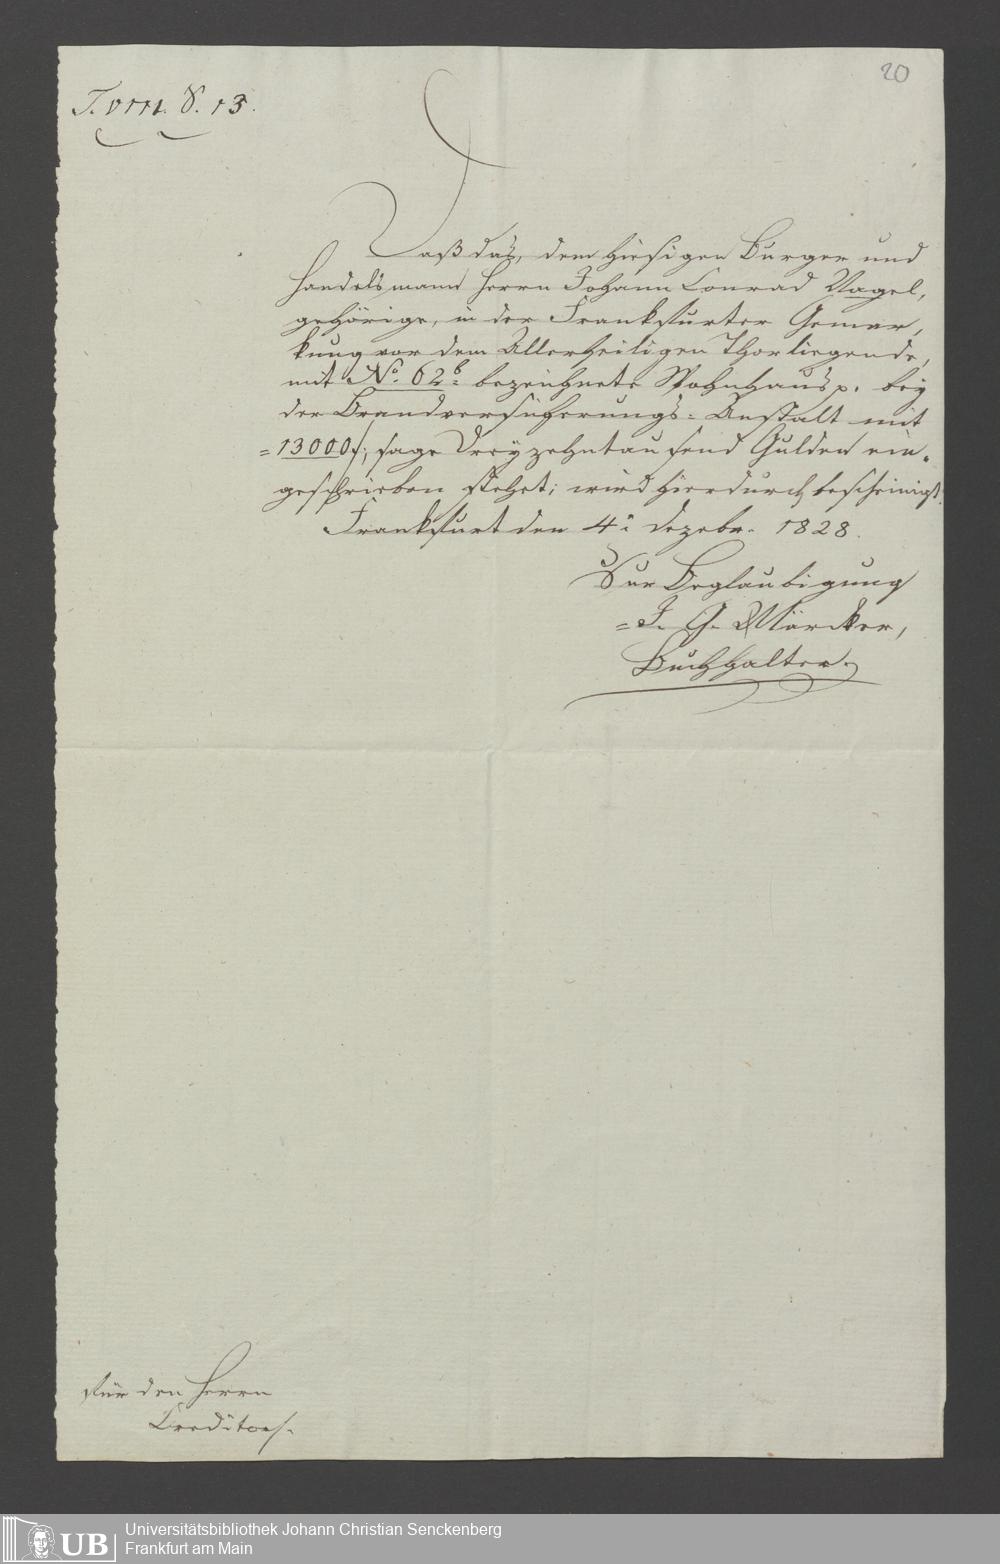 20
T. VIII. S. 13.
Daß das, dem hiesigen Burger und
Handelsmann Herrn Johann Conrad Nagel,
gehörige, in der Frankfurter Gemar,
kung vor dem Allerheiligen Thor liegende,
mit No. 62b. bezeichnete Wohnhaus p. bey
der Brandversicherungs-Anstalt mit
=13000 f; sage Dreyzehntausend Gulden ein-
geschrieben stehet; wird hierdurch bescheinigt.
Frankfurt den 4n Dezebr. 1828.
Zur Beglaubigung
=J. G. Märcker,
Buchhalter.
Für den Herrn
Creditor.
UB Universitätsbibliothek Johann Christian Senckenberg
Frankfurt am Main